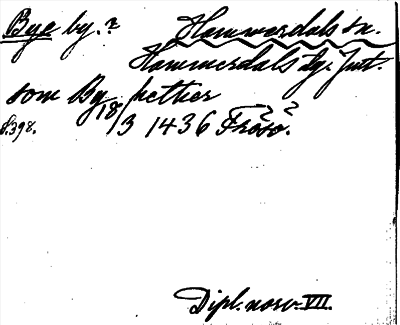 Bye by.? Hammerdals sn.
Hammerdals tg. Jmt.
som By, hether
s. 398. 18/3 1436 Frösö.²
Dipl. norv. VII.